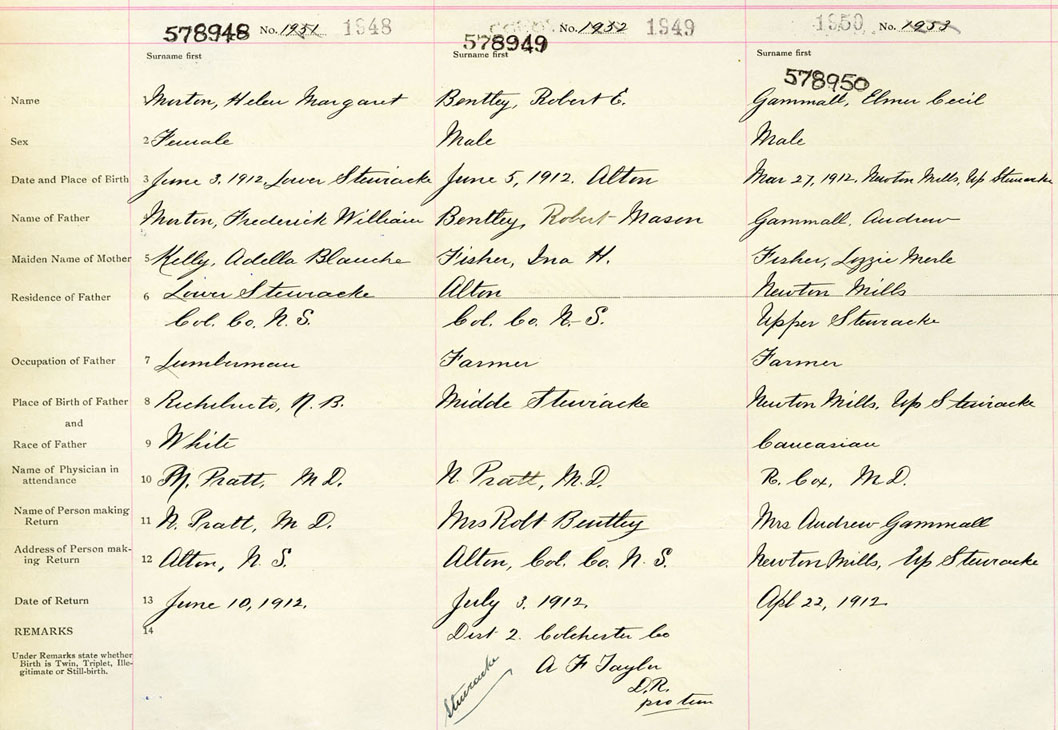 578948 No. 1951 1948 578949 No. 1952 1949 1950 No. 1953
Surname first Surname first Surname first
578950
Name 1 Morton, Helen Margaret Bentley, Robert E. Gammall, Elmer Cecil
Sex 2 Female Male Male
Date and Place of Birth 3 June 3, 1912, Lower Stewiacke June 5, 1912. Alton Mar 27, 1912, Newton Mills, Up Stewiacke
Name of Father Morton, Frederick William Bentley, Robert Mason Gammall, Andrew
Maiden Name of Mother 5 Kelly, Adella Blanche Fisher, Ina H. Fisher, Lizzie Merle
Residence of Father 6 Lower Stewiacke Alton Newton Mills
Col. Co. N. S. Col. Co. N. S. Upper Stewiacke
Occupation of Father 7 Lumberman Farmer Farmer
Place of Birth of Father 8 Richibucto, N. B. Midde Stewiacke Newton Mills, Up Stewiacke
and
Race of Father 9 White Caucasian
Name of Physician in
attendance 10 Pratt, M D. N. Pratt, M.D. R. Cox, M D.
Name of Person making
Return 11 N. Pratt, M D. Mrs Robt Bentley Mrs Andrew Gammall
Address of Person mak-
ing Return 12 Alton, N. S. Alton, Col. Co. N. S. Newton Mills, Up Stewiacke
Date of Return 13 June 10, 1912. July 3, 1912. Apl 22, 1912
REMARKS 14 Dist 2. Colchester Co
Under Remarks state whether
Birth is Twin, Triplet, Ille-
gitimate or Still-birth.
Stewiacke A F Taylor
D.R.
pro tem